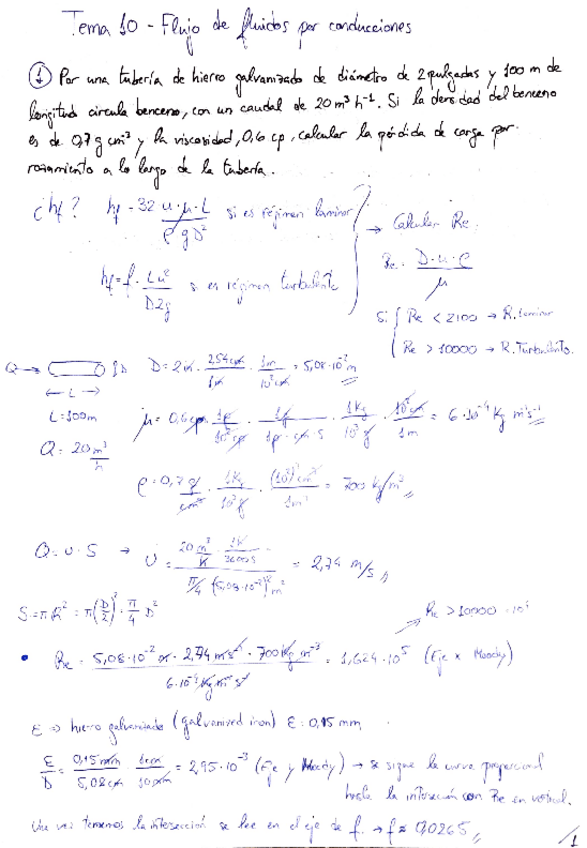 Tema 10 - Flujo de fluidos por conducciones
① Por una tubería de hierro galvanizado de diámetro de 2 pulgadas y 100 m de
longitud circula benceno, con un caudal de 20 m³ h⁻¹. Si la densidad del benceno
es de 0,7 g cm⁻³ y la viscosidad, 0,6 cp, calcular la pérdida de carga por
rozamiento a lo largo de la tubería.
¿hf? hf = 32 u·μ·L / ρ g D² si es régimen laminar
→ Calcular Re:
hf = f · L u² / D 2g si es régimen turbulento
Re = D·u·ρ / μ
Si { Re < 2100 → R. Laminar
Re > 10000 → R. Turbulento.
Q → D D = 2 in · 2,54 cm / 1 in · 1m / 10² cm = 5,08·10⁻² m
← L →
L = 100m
μ = 0,6 cp · 1p / 10² cp · 1g / 1p·cm·s · 1kg / 10³ g · 10² cm / 1m = 6·10⁻⁴ kg m⁻¹ s⁻¹
Q = 20 m³ / h
ρ = 0,7 g / cm³ · 1kg / 10³ g · (10²)³ cm³ / 1m³ = 700 kg/m³
Q = u · S → U = 20 m³ / h · 1h / 3600 s / π/4 (5,08·10⁻²)² m² = 2,74 m/s
S = π R² = π (D/2)² = π/4 D²
Re > 10000 = 10⁴
• Re = 5,08·10⁻² m · 2,74 m s⁻¹ · 700 kg m⁻³ / 6·10⁻⁴ kg m⁻¹ s⁻¹ = 1,624·10⁵ (Eje x Moody)
ε ⇒ hierro galvanizado (galvanized iron) ε = 0,15 mm
ε/D = 0,15 mm / 5,08 cm · 1cm / 10mm = 2,95·10⁻³ (Eje y Moody) → se sigue la curva proporcional
hasta la intersección con Re en vertical.
Una vez tenemos la intersección se lee en el eje de f. → f ≈ 0,0265
/1